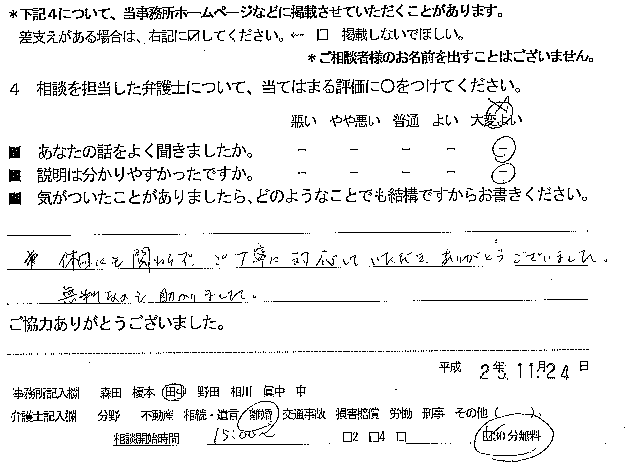 *下記4について、当事務所ホームページなどに掲載させていただくことがあります。
差支えがある場合は、右記に☑してください。← □ 掲載しないでほしい。
*ご相談者様のお名前を出すことはございません。
4 相談を担当した弁護士について、当てはまる評価に〇をつけてください。
悪い やや悪い 普通 よい 大変よい
■ あなたの話をよく聞きましたか。 - - - - -
■ 説明は分かりやすかったですか。 - - - - -
■ 気がついたことがありましたら、どのようなことでも結構ですからお書きください。
休日にも関わらず、ご丁寧に対応していただき、ありがとうございました。
無料なのも助かりました。
ご協力ありがとうございました。
平成 25.11月24日
事務所記入欄 森田 榎本 田中 野田 相川 眞中 中
弁護士記入欄 分野 不動産 相続・遺言 離婚 交通事故 損害賠償 労働 刑事 その他( )
相談開始時間 15:00~ □2 □4 □ 30分無料